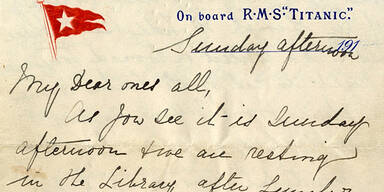 On board R·M·S "TITANIC."
Sunday afternoon 191
My Dear ones all,
As you see it is Sunday
afternoon & we are resting
in the Library after Lunch